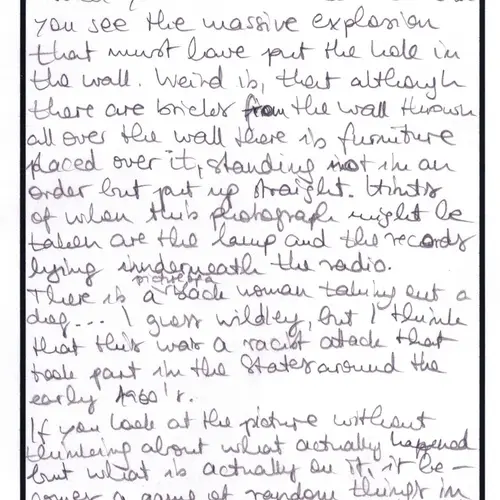 you see the massive explosion
that must have put the hole in
the wall. Weird is, that although
there are bricks from the wall thrown
all over the wall there is furniture
placed over it, standing not in an
order but put up straight. Hints
of when this photograph might be
taken are the lamp and the records
lying inunderneath the radio.
There is a black woman taking out a
dog... I guess wildley, but I think
that this was a racist attack that
took part in the States around the
early 1960's.
If you look at the picture without
thinking about what actually happened
but what is actually on it, it be-
comes a game of random things in